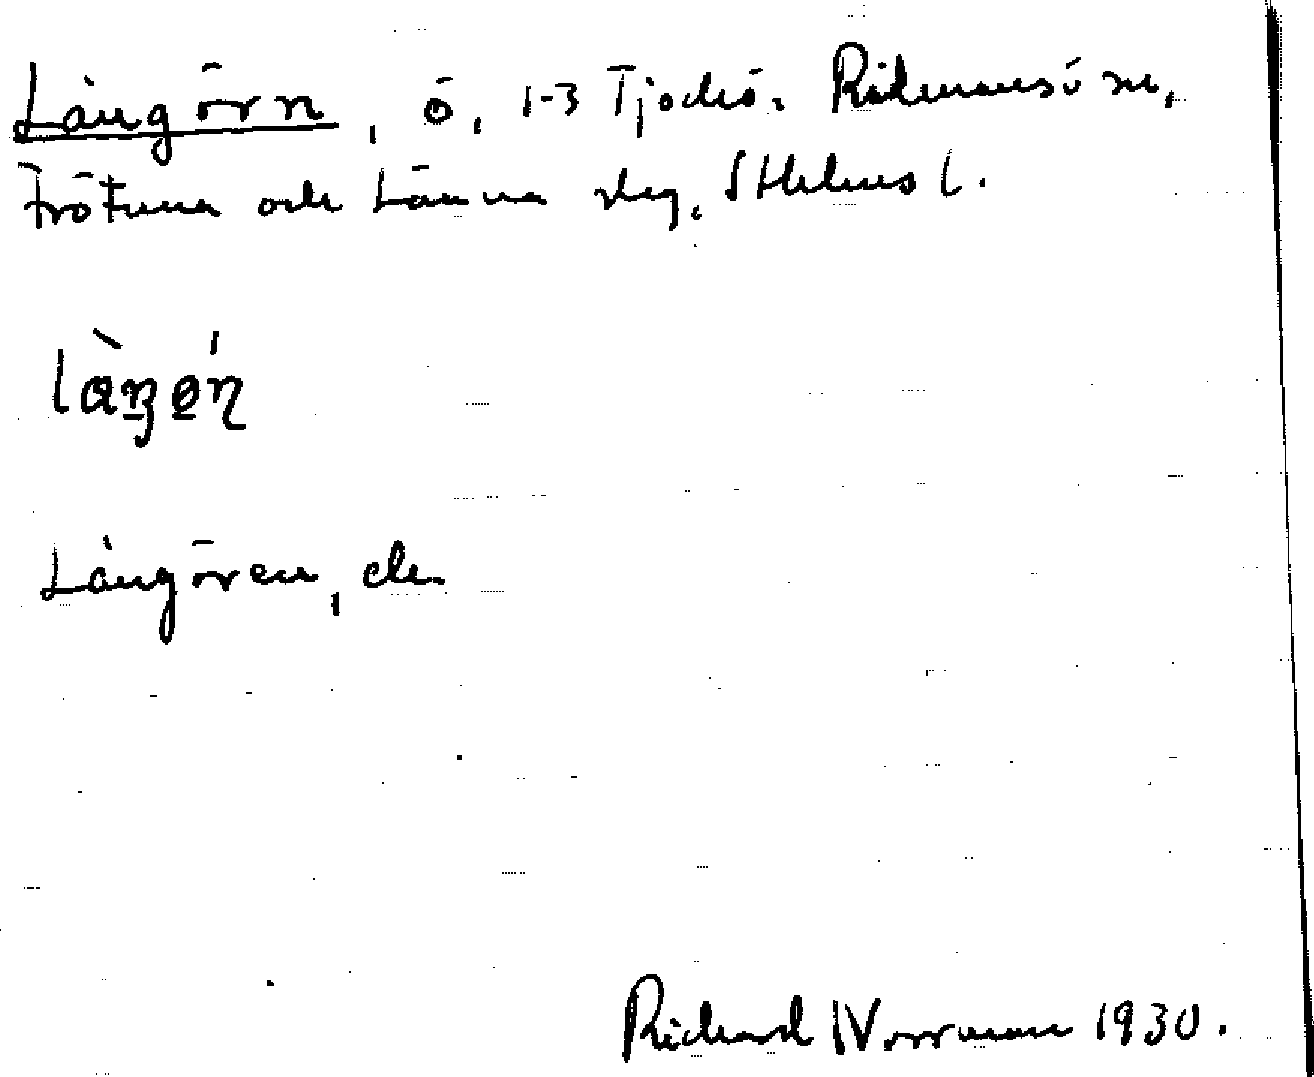 Långörn, ö, 1-3 Tjockö. Rådmansö sn,
Frötuna och Länna slg, Sthlms l.
làŋǿn
Långören, de
Richard Norrman 1930.